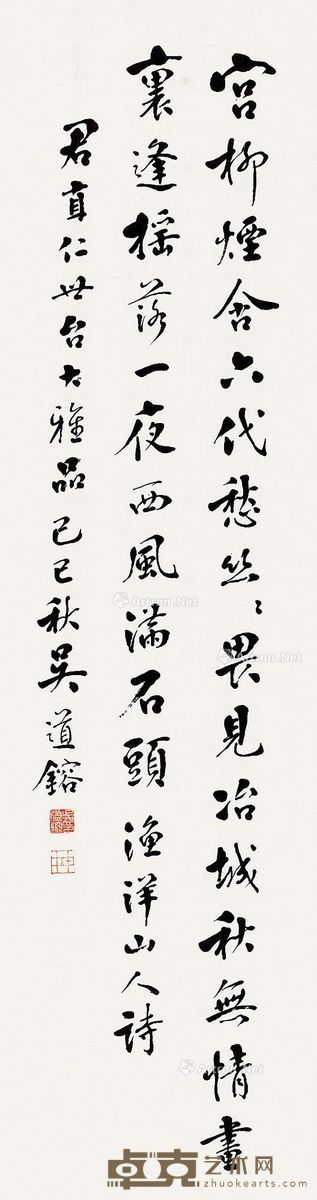 宮柳煙含六代愁絲〻畏見冶城秋無情畫
裏逢搖落一夜西風滿石頭漁洋山人詩
君直仁世台大雅品己巳秋吳道鎔
Artron.Net
Artron.Net
Artron.Net
卓克艺术网
www.zhuokearts.com